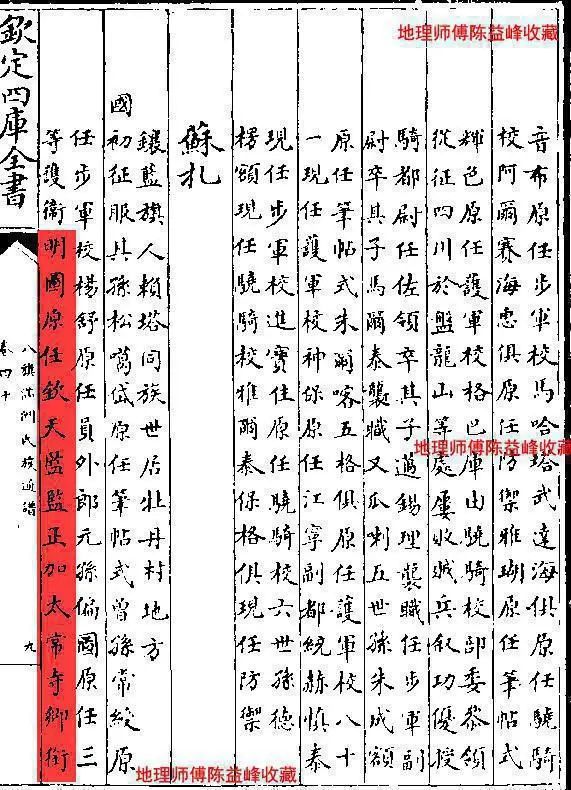 地理师傅陈益峰收藏
音布原任步軍校馬哈塔武達海俱原任驍騎
校阿爾賽海惠俱原任防禦雅瑚原任筆帖式
輝色原任護軍校格巴庫由驍騎校部委叅領
從征四川於盤龍山等處屢敗賊兵叙功優授
騎都尉任佐領卒其子邁錫理襲職任步軍副
尉卒其子馬爾泰襲職又瓜喇五世孫朱成額
原任筆帖式朱爾喀五格俱原任護軍校八十
一現任護軍校神保原任江寧副都統赫慎泰
現任步軍校進寶住原任驍騎校六世孫德
楞額現任驍騎校雅爾泰保格俱現任防禦
蘇札
鑲藍旗人賴塔同族世居壯丹村地方
國初征服其孫松噶岱原任筆帖式曾孫常綬原
任步軍校楊舒原任員外郎元孫偏圖原任三
等護衛明圖原任欽天監監正加太常寺卿銜
欽定四庫全書
八旗滿洲氏族通譜
卷四十
九
地理师傅陈益峰收藏
地理师傅陈益峰收藏